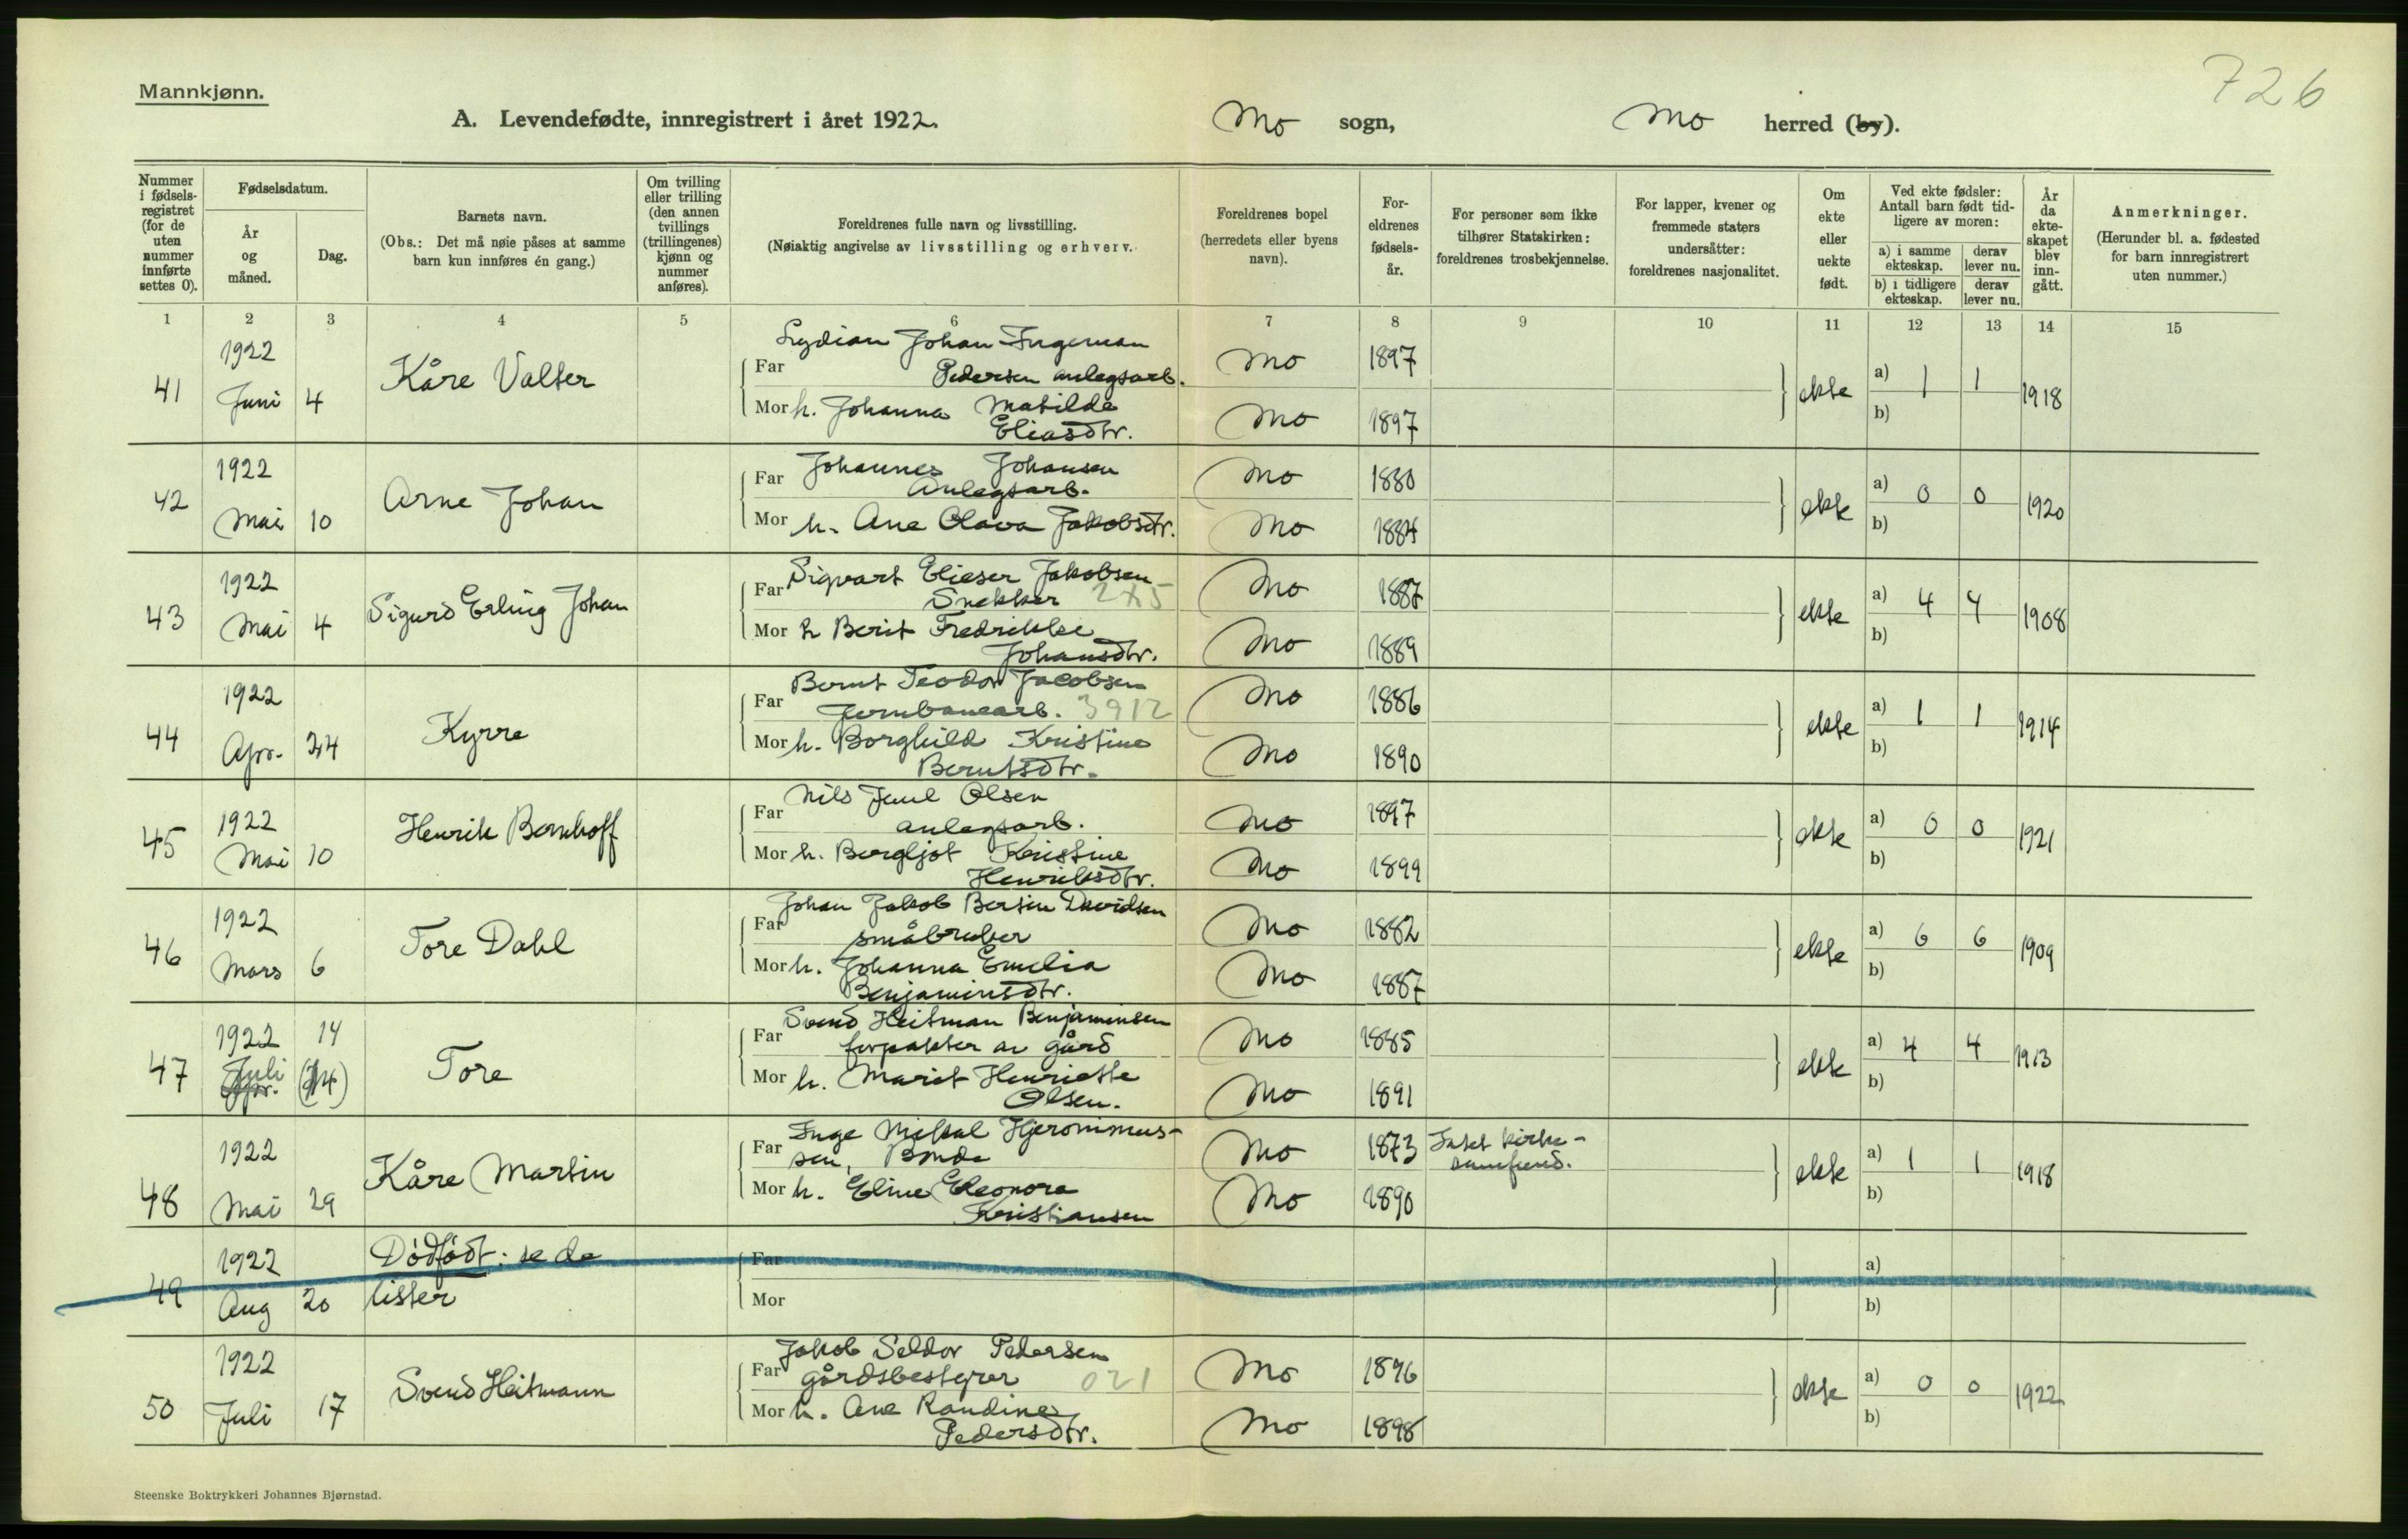 726
Mannkjønn.
A. Levendefødte, innregistrert i året 1922. Mo sogn, Mo herred (by).
Nummer i fødsels-registret (for de uten nummer innførte settes 0).
Fødselsdatum.
År og måned.
Dag.
Barnets navn.
(Obs.: Det må nøie påses at samme barn kun innføres én gang.)
Om tvilling eller trilling (den annen tvillings (trillingenes) kjønn og nummer anføres).
Foreldrenes fulle navn og livsstilling.
(Nøiaktig angivelse av livsstilling og erhverv.
Foreldrenes bopel (herredets eller byens navn).
For-eldrenes fødsels-år.
For personer som ikke tilhører Statskirken: foreldrenes trosbekjennelse.
For lapper, kvener og fremmede staters undersåtter: foreldrenes nasjonalitet.
Om ekte eller uekte født.
Ved ekte fødsler: Antall barn født tid-ligere av moren:
a) i samme ekteskap. derav lever nu.
b) i tidligere ekteskap. derav lever nu.
År da ekte-skapet blev inn-gått.
Anmerkninger.
(Herunder bl. a. fødested for barn innregistrert uten nummer.)
1 2 3 4 5 6 7 8 9 10 11 12 13 14 15
41 1922 Juni 4 Kåre Valter
Lydian Johan Ingeman
Far Pedersen anlegsarb. Mo 1897
Mor h. Johanna Matilde
Eliasdtr. Mo 1897
ekte a) 1 1 b) 1918
42 1922 Mai 10 Arne Johan
Far Johannes Johansen
Anlegsarb. Mo 1880
Mor h. Ane Olava Jakobsdtr. Mo 1884
ekte a) 0 0 b) 1920
43 1922 Mai 4 Sigurd Erling Johan
Far Sigvart Elieser Jakobsen
Snekker Mo 1887
Mor h Berit Fredrikke
Johansdtr. Mo 1889
ekte a) 4 4 b) 1908
44 1922 Apr. 24 Kyrre
Bernt Teodor Jacobsen
Far Jernbanearb. 3912 Mo 1886
Mor h. Borghild Kristine
Berntsdtr. Mo 1890
ekte a) 1 1 b) 1914
45 1922 Mai 10 Henrik Bernhoff
Nils Juul Olsen
Far anlegsarb. Mo 1897
Mor h. Bergljot Kristine
Henriksdtr. Mo 1899
ekte a) 0 0 b) 1921
46 1922 Mars 6 Tore Dahl
Johan Jakob Bersin Davidsen
Far småbruker Mo 1882
Mor h. Johanna Emelia
Benjaminsdtr. Mo 1887
ekte a) 6 6 b) 1909
47 1922 14 Juli Apr. (14) Tore
Svend Heitman Benjaminsen
Far forpakter av gård Mo 1885
Mor h. Marit Henriette
Olsen. Mo 1891
ekte a) 4 4 b) 1913
48 1922 Mai 29 Kåre Martin
Inge Mikal Hjeronimus-
Far sen, Bonde Mo 1873 Intet kirke-
samfund.
Mor h. Eline Eleonora
Kristiansen Mo 1890
ekte a) 1 1 b) 1918
49 1922 Aug 20 Dødfødt: se de
lister
Far
Mor
a)
b)
50 1922 Juli 17 Svend Heitmann
Jakob Seldor Pedersen
Far gårdsbestyrer 021 Mo 1896
Mor h. Ane Randine
Pedersdtr. Mo 1898
ekte a) 0 0 b) 1922
Steenske Boktrykkeri Johannes Bjørnstad.